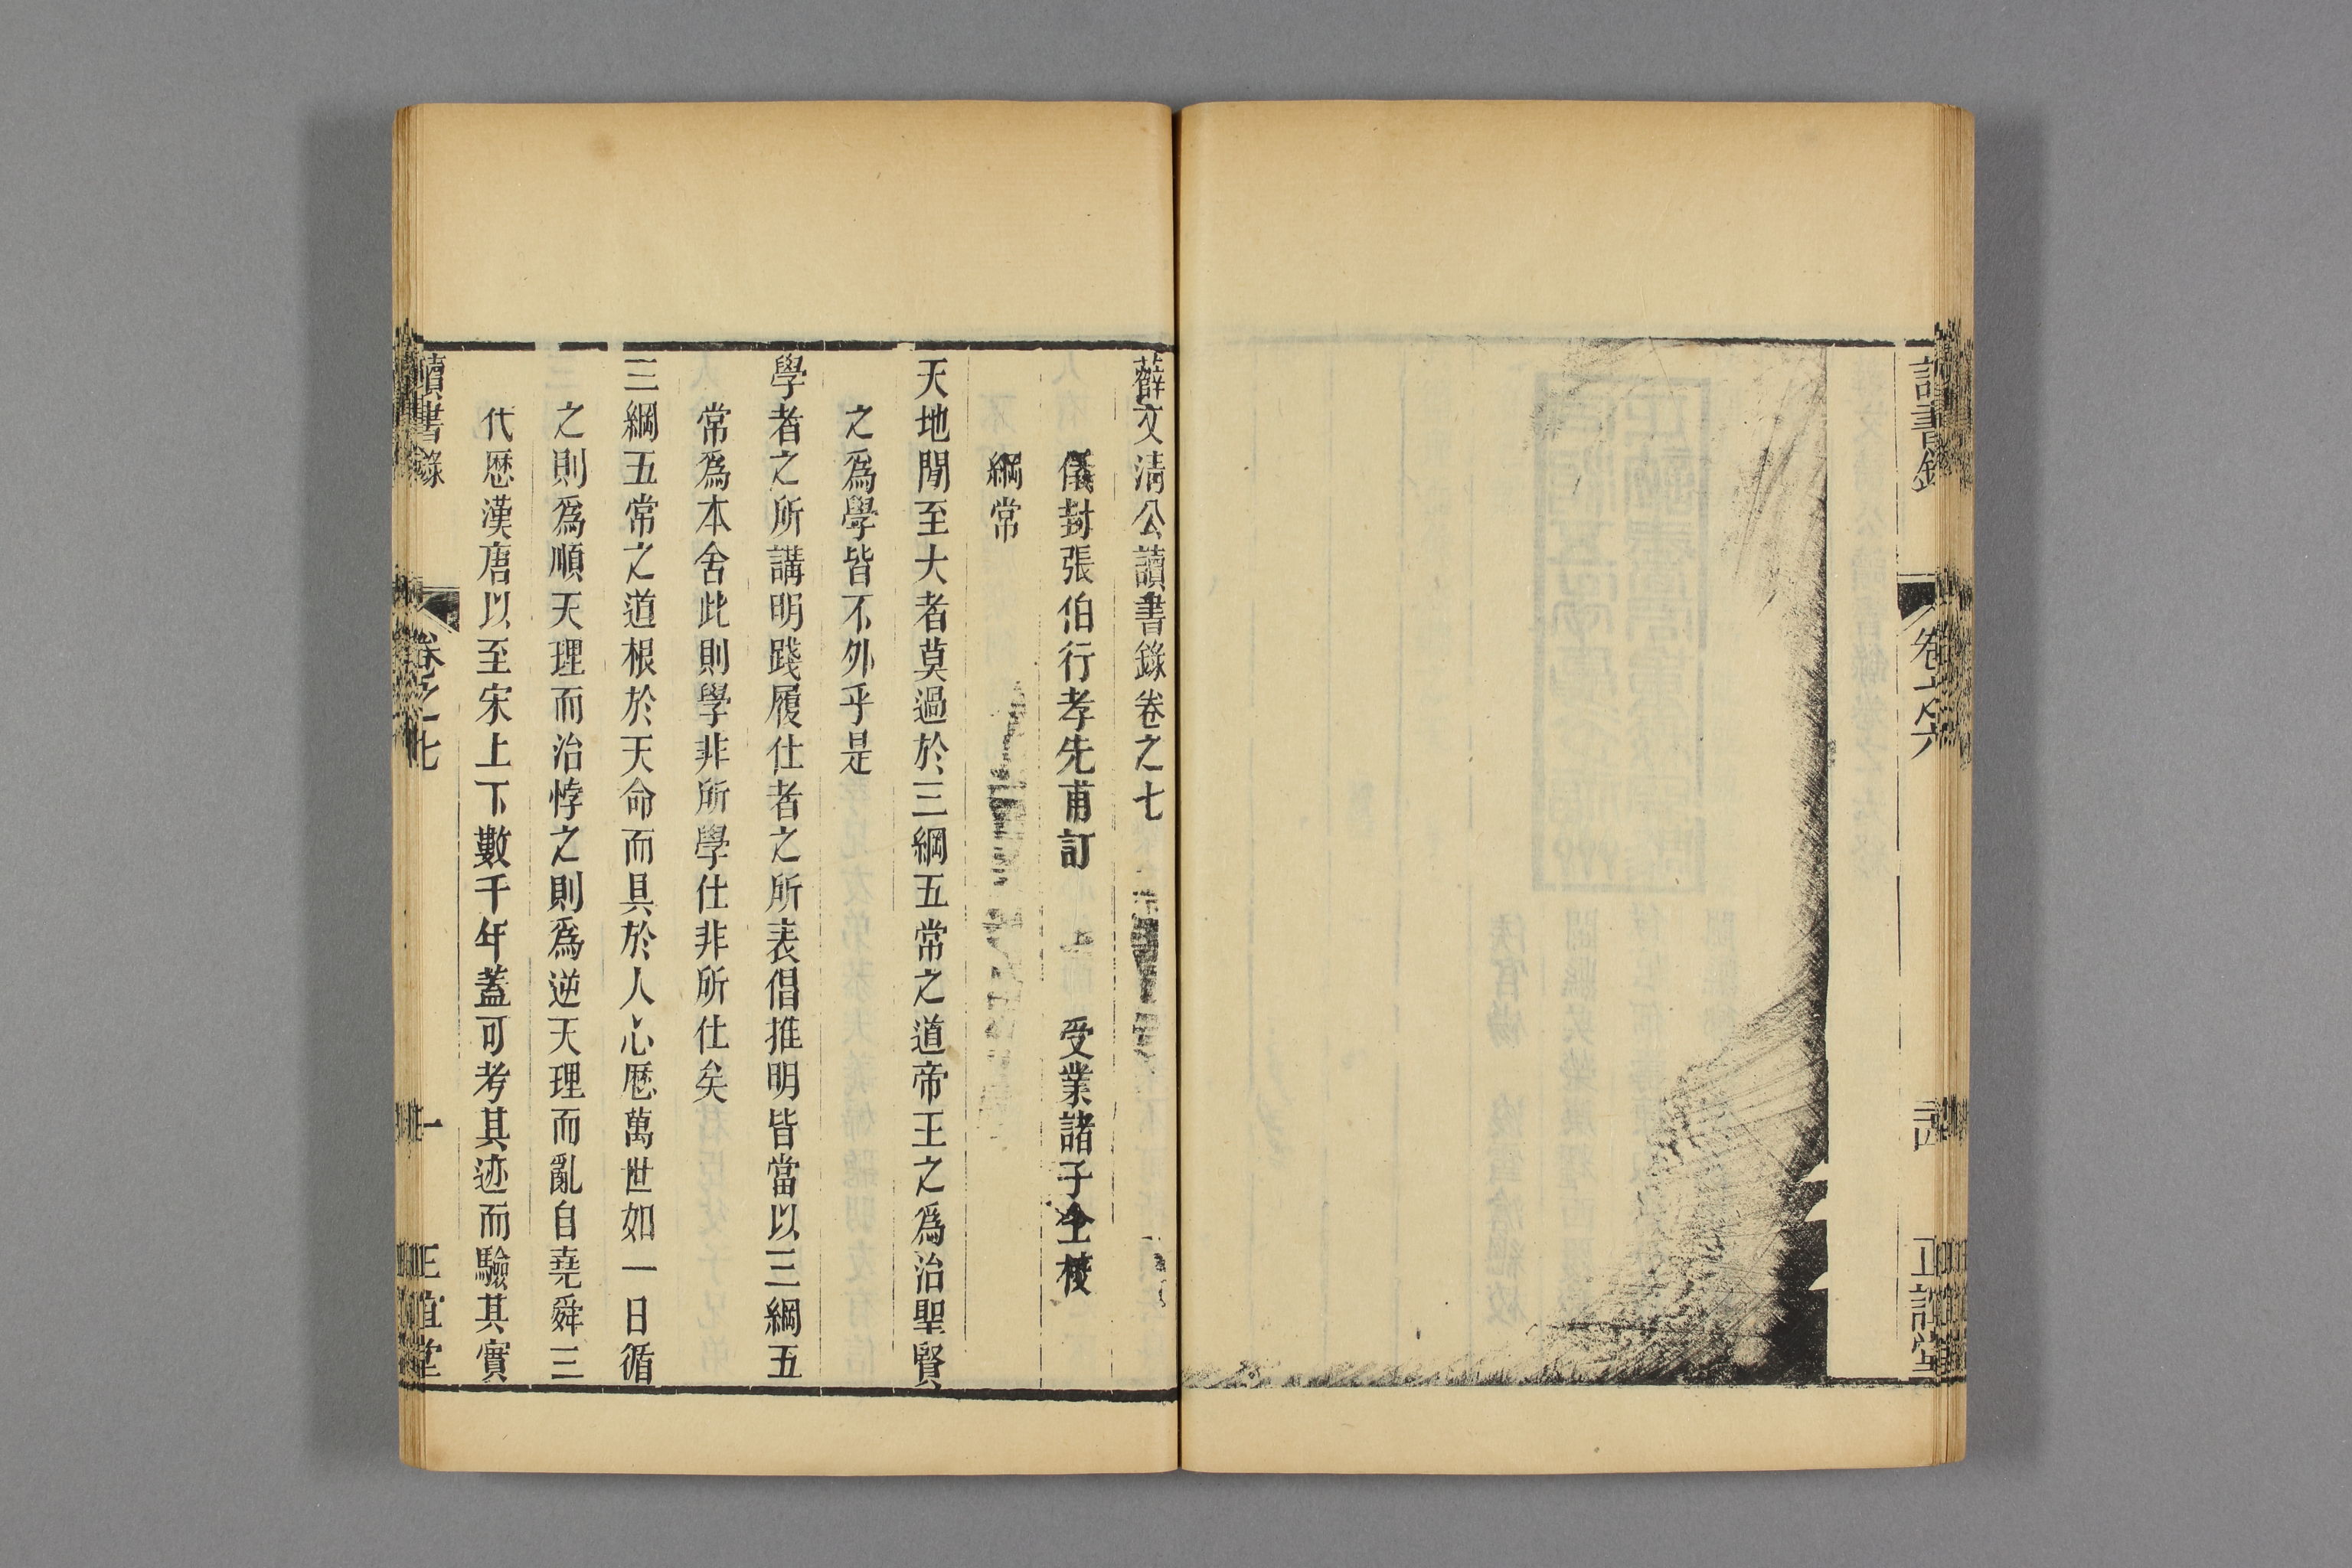 讀書錄
卷之六
正誼堂
薛文淸公讀書錄卷之七
儀封張伯行孝先甫訂 受業諸子仝校
綱常
天地閒至大者莫過於三綱五常之道帝王之爲治聖賢
之爲學皆不外乎是
學者之所講明踐履仕者之所表倡推明皆當以三綱五
常爲本舍此則學非所學仕非所仕矣
三綱五常之道根於天命而具於人心歷萬世如一日循
之則爲順天理而治悖之則爲逆天理而亂自堯舜三
代歷漢唐以至宋上下數千年蓋可考其迹而驗其實
讀書錄
卷之七
一
正誼堂